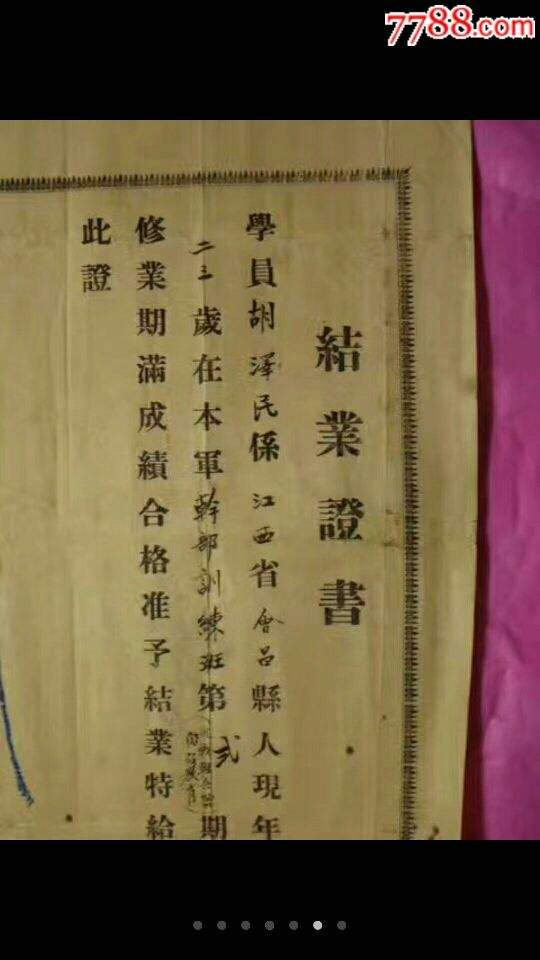 7788.com
結業證書
學員胡澤民係江西省會昌縣人現年
二三歲在本軍幹部訓練班第弍期
修業期滿成績合格准予結業特給
此證